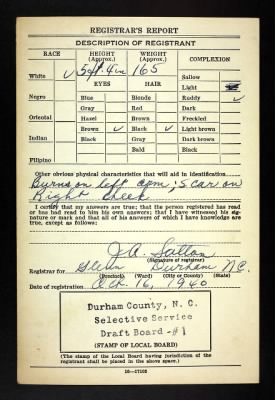 REGISTRAR'S REPORT
DESCRIPTION OF REGISTRANT
RACE HEIGHT (Approx.) WEIGHT (Approx.) COMPLEXION
White ✓ 5 ft 4 in 165 Sallow
EYES HAIR Light
Negro Blue Blonde Ruddy ✓
Gray Red Dark
Oriental Hazel Brown Freckled
Brown ✓ Black ✓ Light brown
Indian Black Gray Dark brown
Bald Black
Filipino
Other obvious physical characteristics that will aid in identification
Burns on left arm; scar on
Right cheek
I certify that my answers are true; that the person registered has read
or has had read to him his own answers; that I have witnessed his sig-
nature or mark and that all of his answers of which I have knowledge are
true, except as follows:
J. A.
(Signature of registrar)
Registrar for Glenn Durham N.C.
(Precinct) (Ward) (City or County) (State)
Date of registration Oct. 16, 1940
Durham County, N. C.
Selective Service
Draft Board -#1
(STAMP OF LOCAL BOARD)
(The stamp of the Local Board having jurisdiction of the
registrant shall be placed in the above space.)